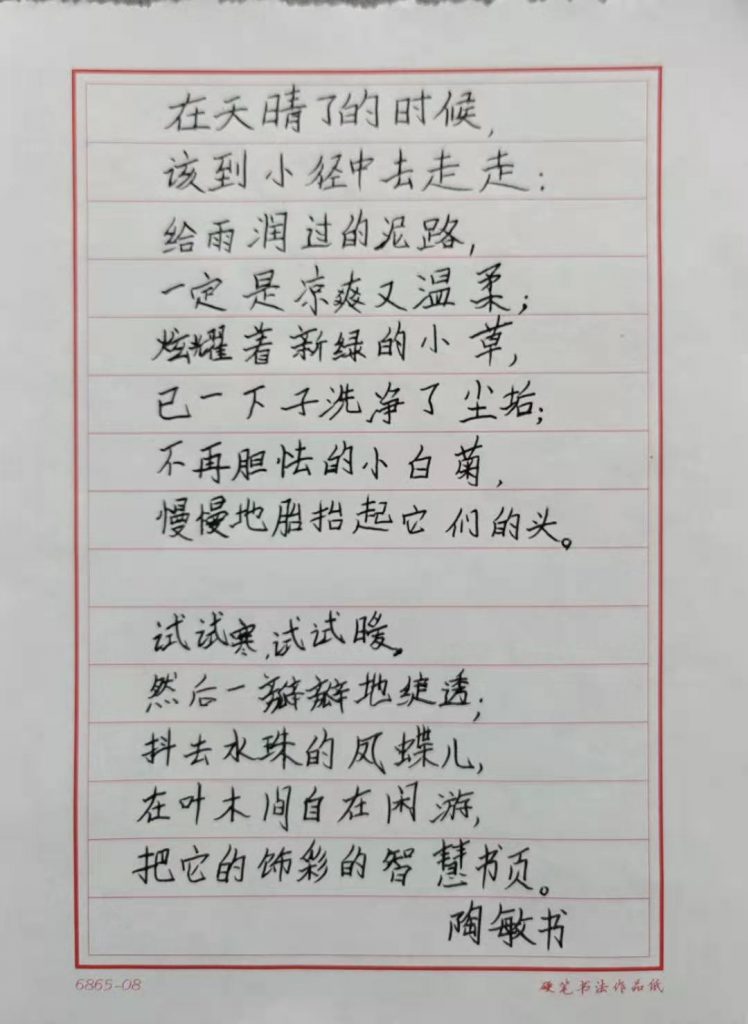 在天晴了的时候,
该到小径中去走走:
给雨润过的泥路,
一定是凉爽又温柔;
炫耀着新绿的小草,
已一下子洗净了尘垢;
不再胆怯的小白菊,
慢慢地胎抬起它们的头。
试试寒,试试暖。
然后一瓣瓣地绽透;
抖去水珠的凤蝶儿,
在叶木间自在闲游,
把它的饰彩的智慧书页。
陶敏书
6865-08
硬笔书法作品纸